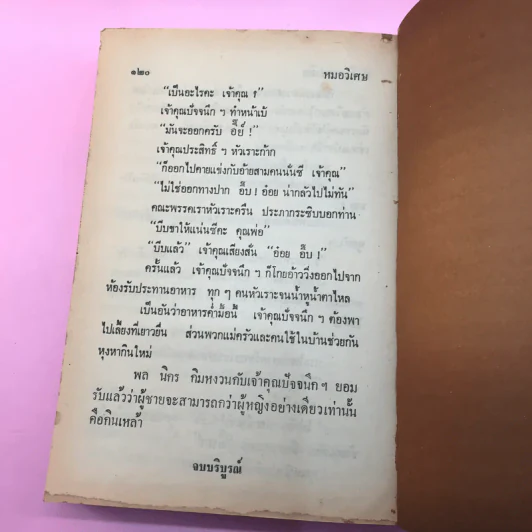 ๑๒๐ หมอวิเศษ
“เป็นอะไรคะ เจ้าคุณ ?”
เจ้าคุณปัจจนึก ฯ ทำหน้าเบ้
“มันจะออกครับ อี๊ย์ !”
เจ้าคุณประสิทธิ์ ฯ หัวเราะก้าก
“ก็ออกไปคายแข่งกับอ้ายสามคนนั่นซี เจ้าคุณ”
“ไม่ใช่ออกทางปาก อื๊บ ! อ๋อย น่ากลัวไปไม่ทัน”
คณะพรรคเราหัวเราะครืน ประภากระซิบบอกท่าน
“บีบขาให้แน่นซีคะ คุณพ่อ”
“บีบแล้ว” เจ้าคุณเสียงสั่น “อ๋อย อื๊บ !”
ครั้นแล้ว เจ้าคุณปัจจนึก ฯ ก็โกยอ้าววิ่งออกไปจาก
ห้องรับประทานอาหาร ทุก ๆ คนหัวเราะจนน้ำหูน้ำตาไหล
เป็นอันว่าอาหารค่ำมื้อนี้ เจ้าคุณปัจจนึก ฯ ต้องพา
ไปเลี้ยงที่เยาวยื่น ส่วนพวกแม่ครัวและคนใช้ในบ้านช่วยกัน
หุงหากินใหม่
พล นิกร กิมหงวนกับเจ้าคุณปัจจนึก ฯ ยอม
รับแล้วว่าผู้ชายจะสามารถกว่าผู้หญิงอย่างเดียวเท่านั้น
คือกินเหล้า
จบบริบูรณ์